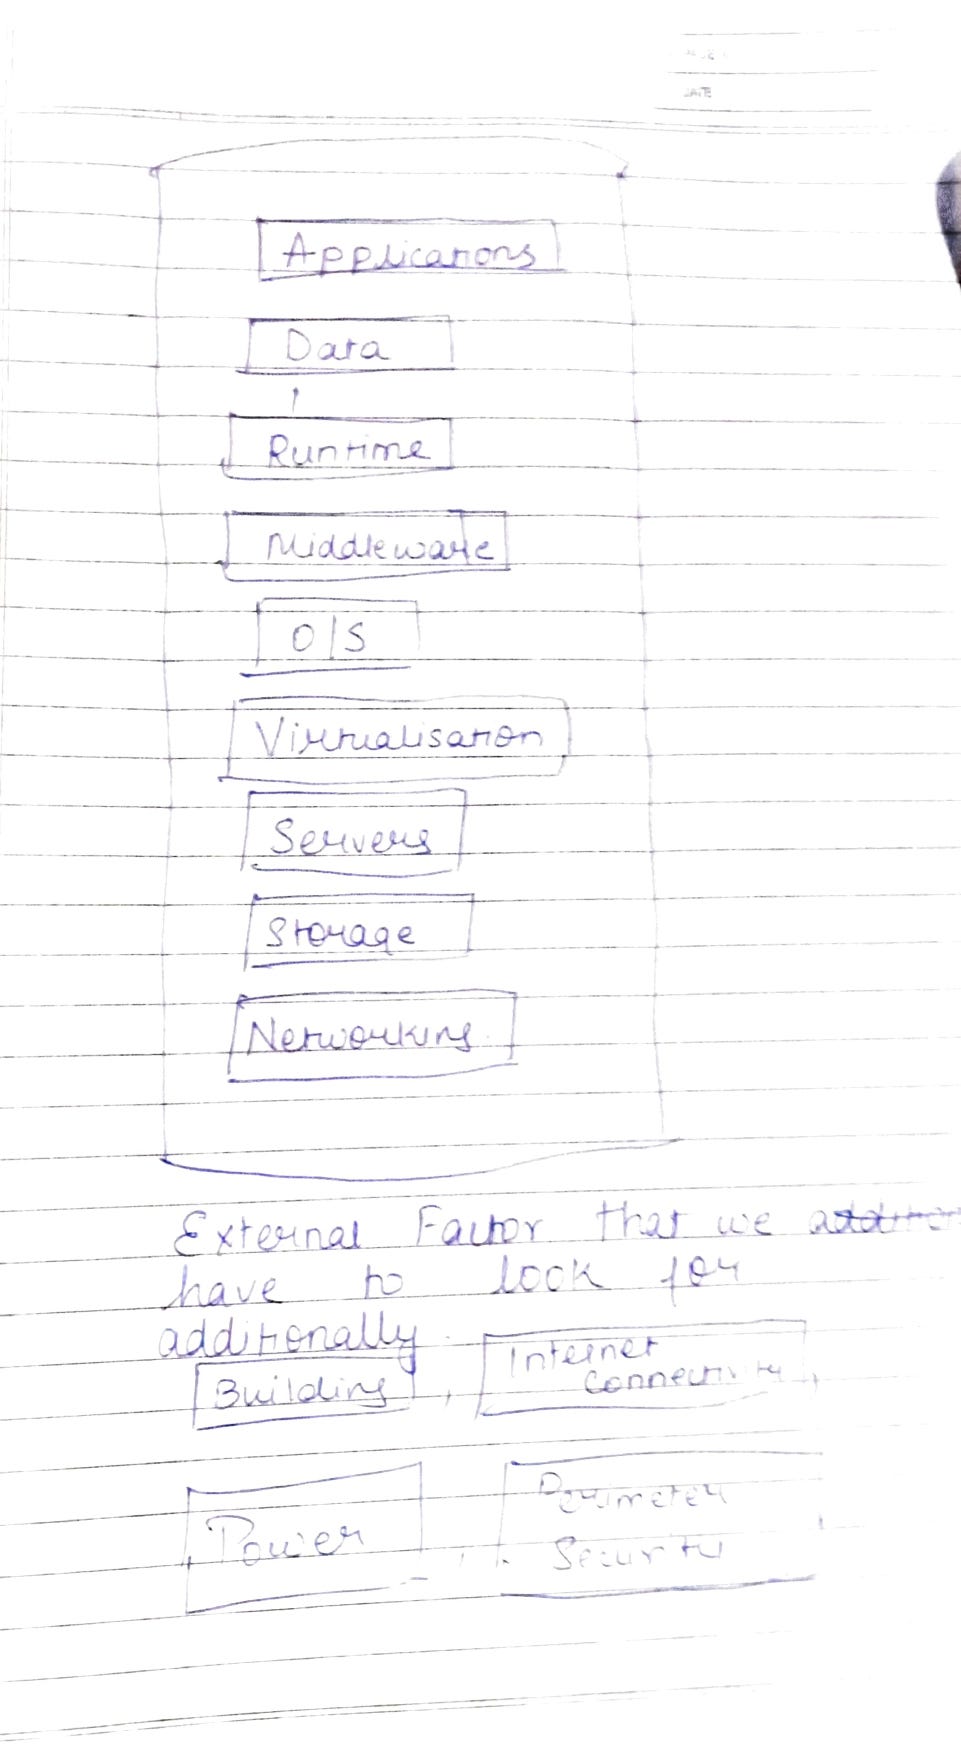 Applications
Data
Runtime
Middleware
O/S
Virtualisation
Servers
Storage
Networking
External Factor that we
have to look for
additionally.
Building, Internet
Connectivity,
Power, Perimeter
Security